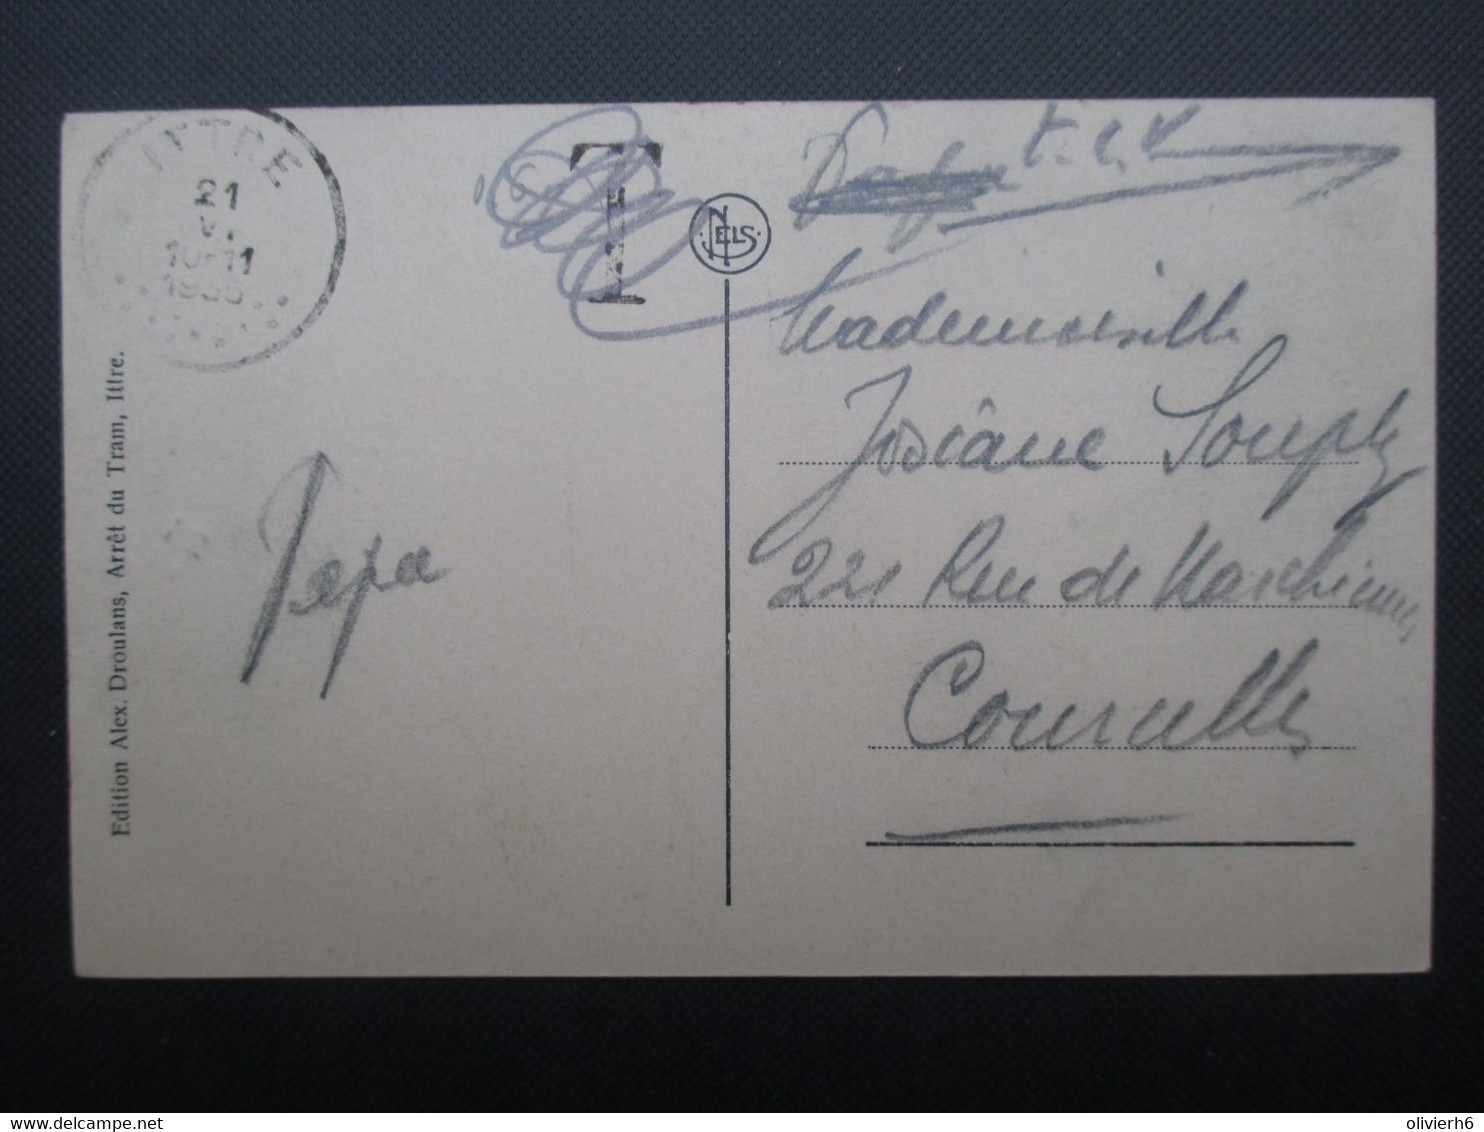 ITTRE
21
V.
10-11
T
t.s.v
NELS
Mademoiselle
Josiâne Souply
221 Rue de Marchienne,
Courcelles
Papa
Edition Alex. Droulans, Arrêt du Tram, Ittre.
delcampe.net
olivierh6